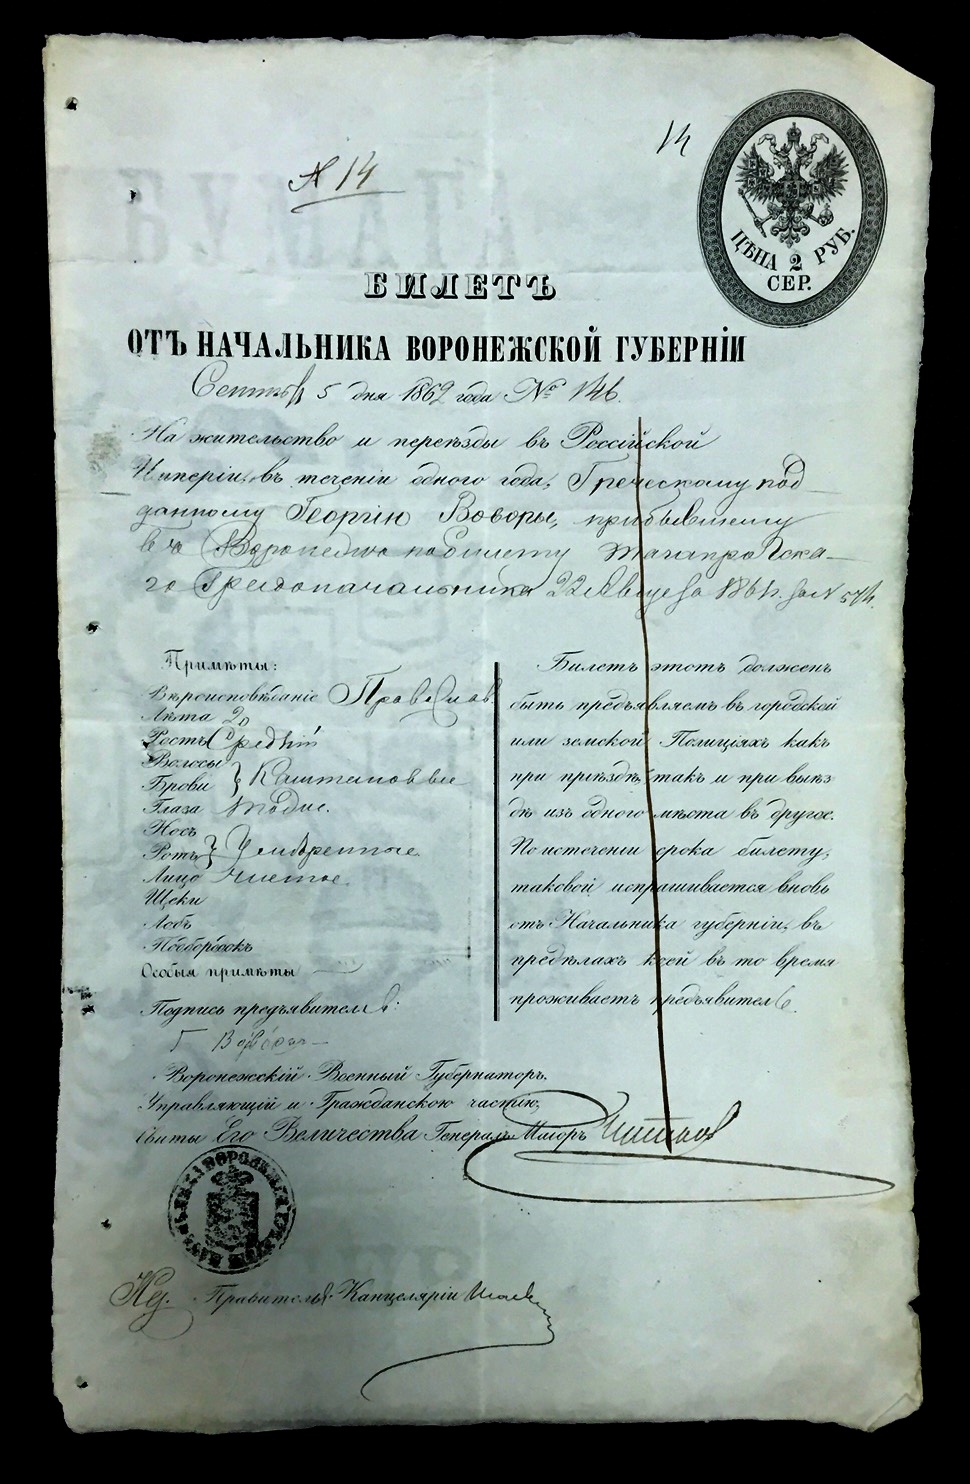 14
№ 14
ЦѢНА 2 РУБ.
СЕР.
БИЛЕТЪ
ОТЪ НАЧАЛЬНИКА ВОРОНЕЖСКОЙ ГУБЕРНІИ
5 дня 1862 года № 146.
На жительство и переѣзды въ Россійской
Имперіи, въ теченіи одного года, Греческому под
данному Георгію Воворы, прибывшему
въ Воронежъ по билету Таганрогска
го Градоначальника 22 Августа 1861 г. за № 574.
Примѣты:
Вѣроисповѣданіе Православ.
Лѣта 20
Ростъ Средній
Волосы
Брови } Каштановые
Глаза
Носъ
Ротъ } Умѣренные
Лицо чистое
Щеки
Лобъ
Подбородокъ
Особыя примѣты
Подпись предъявителя:
Г
Билетъ этотъ долженъ
быть предъявляемъ въ городской
или земской Полиціяхъ какъ
при приѣздѣ, такъ и при выѣз
дѣ изъ одного мѣста въ другое.
По истеченіи срока билету,
таковой испрашивается вновь
отъ Начальника губерніи, въ
предѣлахъ коей въ то время
проживаетъ предъявитель.
Воронежскій Военный Губернаторъ.
Управляющій и Гражданскою частію,
Свиты Его Величества Генералъ Маіоръ
Правитель Канцеляріи